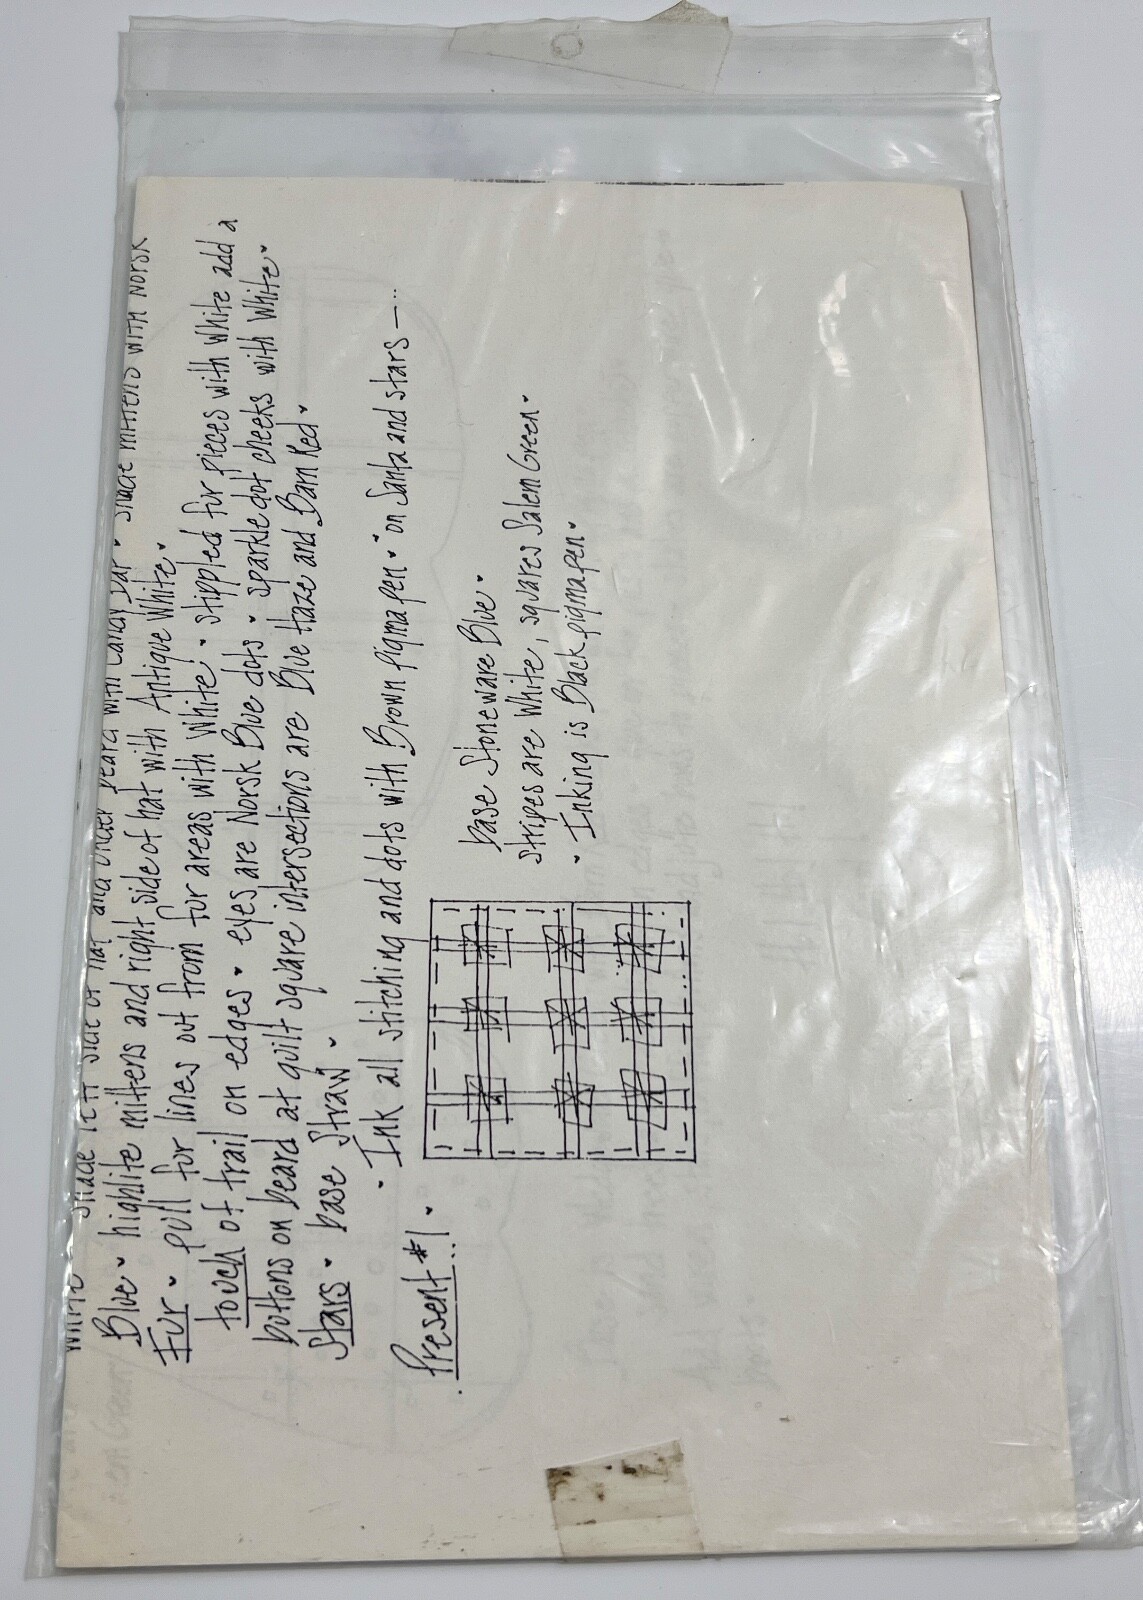 White - shade left side of hat and under beard with Candy Bar • shade mittens with Norsk
Blue • highlite mittens and right side of hat with Antique White •
Fur • pull fur lines out from fur areas with white • stippled fur pieces with white add a
touch of trail on edges • eyes are Norsk Blue dots • sparkle dot cheeks with white •
buttons on beard at quilt square intersections are Blue Haze and Barn Red •
Stars • base Straw •
• Ink all stitching and dots with Brown pigma pen • on Santa and stars —..
• Present #1 •
base Stoneware Blue •
stripes are white, squares Salem Green •
• Inking is Black pigma pen •